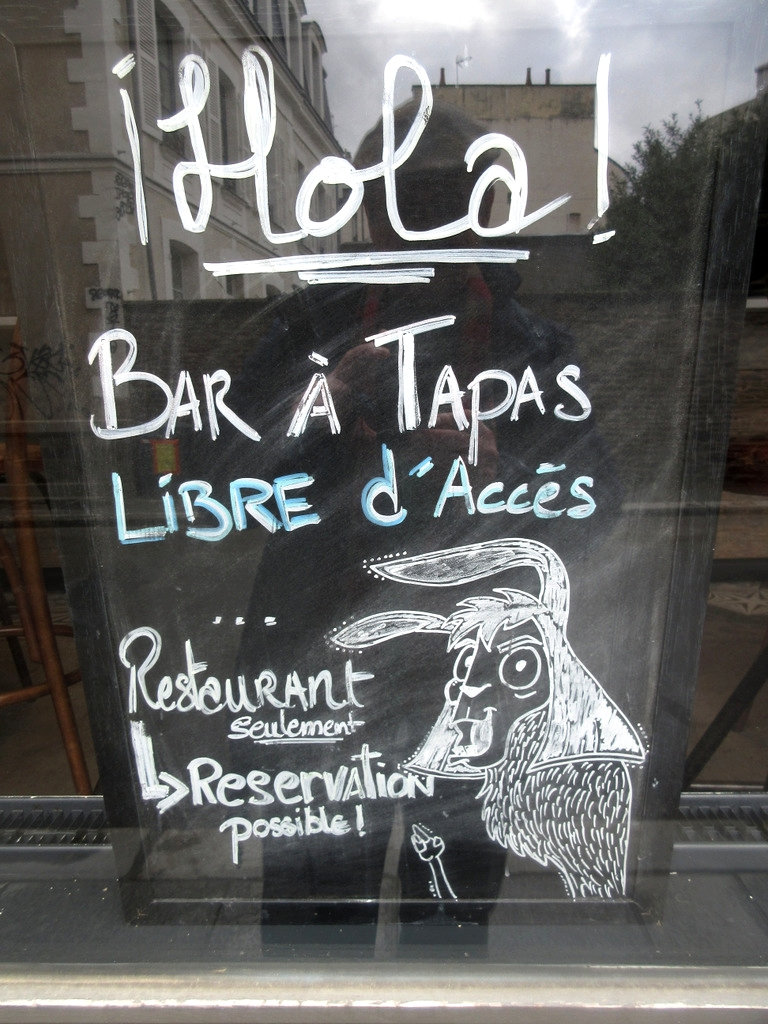 ¡Hola!
BAR À TAPAS
LIBRE d'Accès
...
RestaURANt
seulement
↳ Reservation
possible!